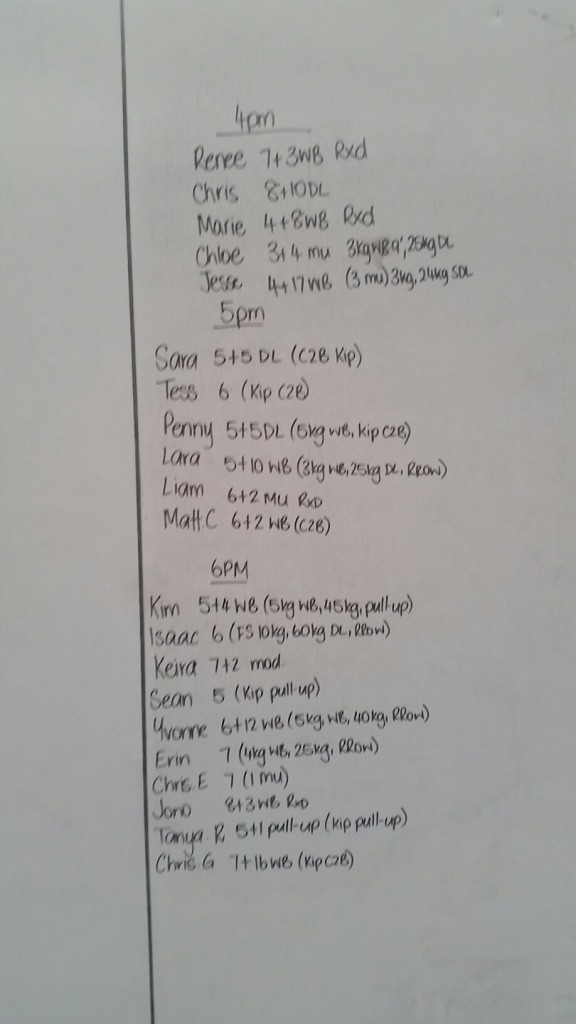 4pm
Renee 7+3WB Rxd
Chris 8+10DL
Marie 4+8WB Rxd
Chloe 3+4 mu 3kgWB 9', 25kg DL
Jesse 4+17WB (3 mu) 3kg, 24kg SDL
5pm
Sara 5+5 DL (C2B Kip)
Tess 6 (Kip C2B)
Penny 5+5DL (5kg WB, Kip C2B)
Lara 5+10 WB (3kg WB, 25kg DL, RRow)
Liam 6+2 MU RxD
Matt.C 6+2 WB (C2B)
6PM
Kim 5+4 WB (5kg WB, 45kg, pull-up)
Isaac 6 (FS 10kg, 60kg DL, RRow)
Keira 7+2 mod.
Sean 5 (Kip pull-up)
Yvonne 6+12 WB (5kg, WB, 40kg, RRow)
Erin 7 (4kg WB, 25kg, RRow)
Chris.E 7 (1 mu)
Jono 8+3 WB RxD
Tanya R 5+1 pull-up (Kip pull-up)
Chris.G 7+16WB (Kip C2B)